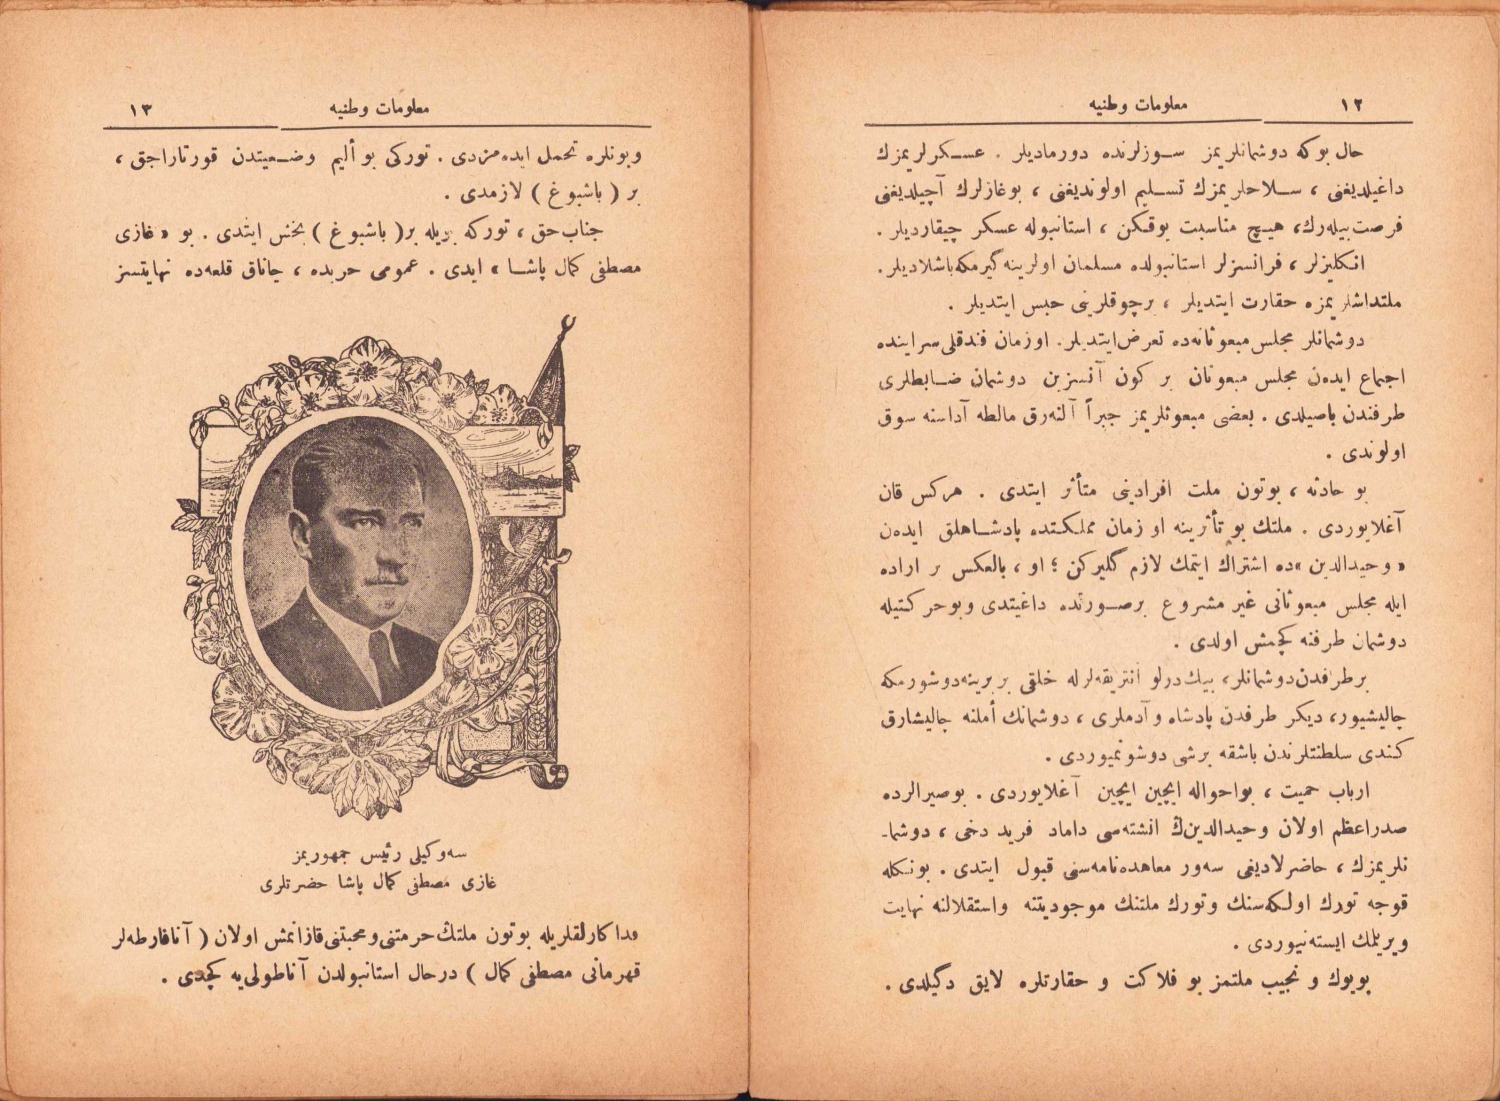 ١٢
معلومات وطنيه
حال بوكه دوشمانلريمز سوزلرنده دورماديلر . عسكرلريمزك
داغيلديغنى ، سلاحلريمزك تسليم اولونديغنى ، بوغازلرك آچيلديغنى
فرصت بيله‌رك، هيچ مناسبت يوقكن ، استانبوله عسكر چيقارديلر .
انكليزلر ، فرانسزلر استانبولده مسلمان اولرينه گيرمكه باشلاديلر .
ملتداشلريمزه حقارت ايتديلر ، برچوقلرينى حبس ايتديلر .
دوشمانلر مجلس مبعوثانه‌ده تعرض ايتديلر. اوزمان فندقلى سراينده
اجتماع ايده‌ن مجلس مبعوثان بر كون آنسزين دوشمان ضابطلرى
طرفندن باصيلدى . بعضى مبعوثلريمز جبراً آلنه‌رق مالطه آداسنه سوق
اولوندى .
بو حادثه ، بوتون ملت افرادينى متأثر ايتدى . هركس قان
آغلايوردى . ملتك بو تأثرينه او زمان مملكتده پادشاهلق ايده‌ن
« وحيدالدين »ده اشتراك ايتمك لازم گليركن ؛ او ، بالعكس بر اراده
ايله مجلس مبعوثانى غير مشروع برصورتده داغيتدى وبوحركتيله
دوشمان طرفنه كچمش اولدى .
برطرفدن دوشمانلر، بيك درلو انتريقه‌لرله خلقى بربرينه دوشورمكه
چاليشيور، ديكر طرفدن پادشاه و آدملرى ، دوشمانك أملنه چاليشارق
كندى سلطنتلرندن باشقه برشى دوشونميوردى .
ارباب حميت ، بواحواله ايچين ايچين آغلايوردى . بوصيرالرده
صدراعظم اولان وحيدالدين‌ك انشته‌سى داماد فريد دخى ، دوشما-
نلريمزك ، حاضرلاديغى سه‌ور معاهده‌نامه‌سنى قبول ايتدى . بونكله
قوجه تورك اولكه‌سنك وتورك ملتنك موجوديتنه واستقلالنه نهايت
ويريلمك ايسته‌نيوردى .
بويوك و نجيب ملتمز بو فلاكت و حقارتلره لايق دگيلدى .
١٣
معلومات وطنيه
وبونلره تحمل ايده‌مزدى . توركى بو أليم وضعيتدن قورتاراجق ،
بر ( باشبوغ ) لازمدى .
جناب حق ، توركه بويله بر( باشبوغ ) بخش ايتدى . بو « غازى
مصطفى كمال پاشا » ايدى . عمومى حربده ، چاناق قلعه‌ده نهايتسز
سه‌وكيلى رئيس جمهوريمز
غازى مصطفى كمال پاشا حضرتلرى
فداكارلقلريله بوتون ملتك حرمتنى ومحبتنى قازانمش اولان ( آنافارطه‌لر
قهرمانى مصطفى كمال ) درحال استانبولدن آناطولى‌يه كچدى .